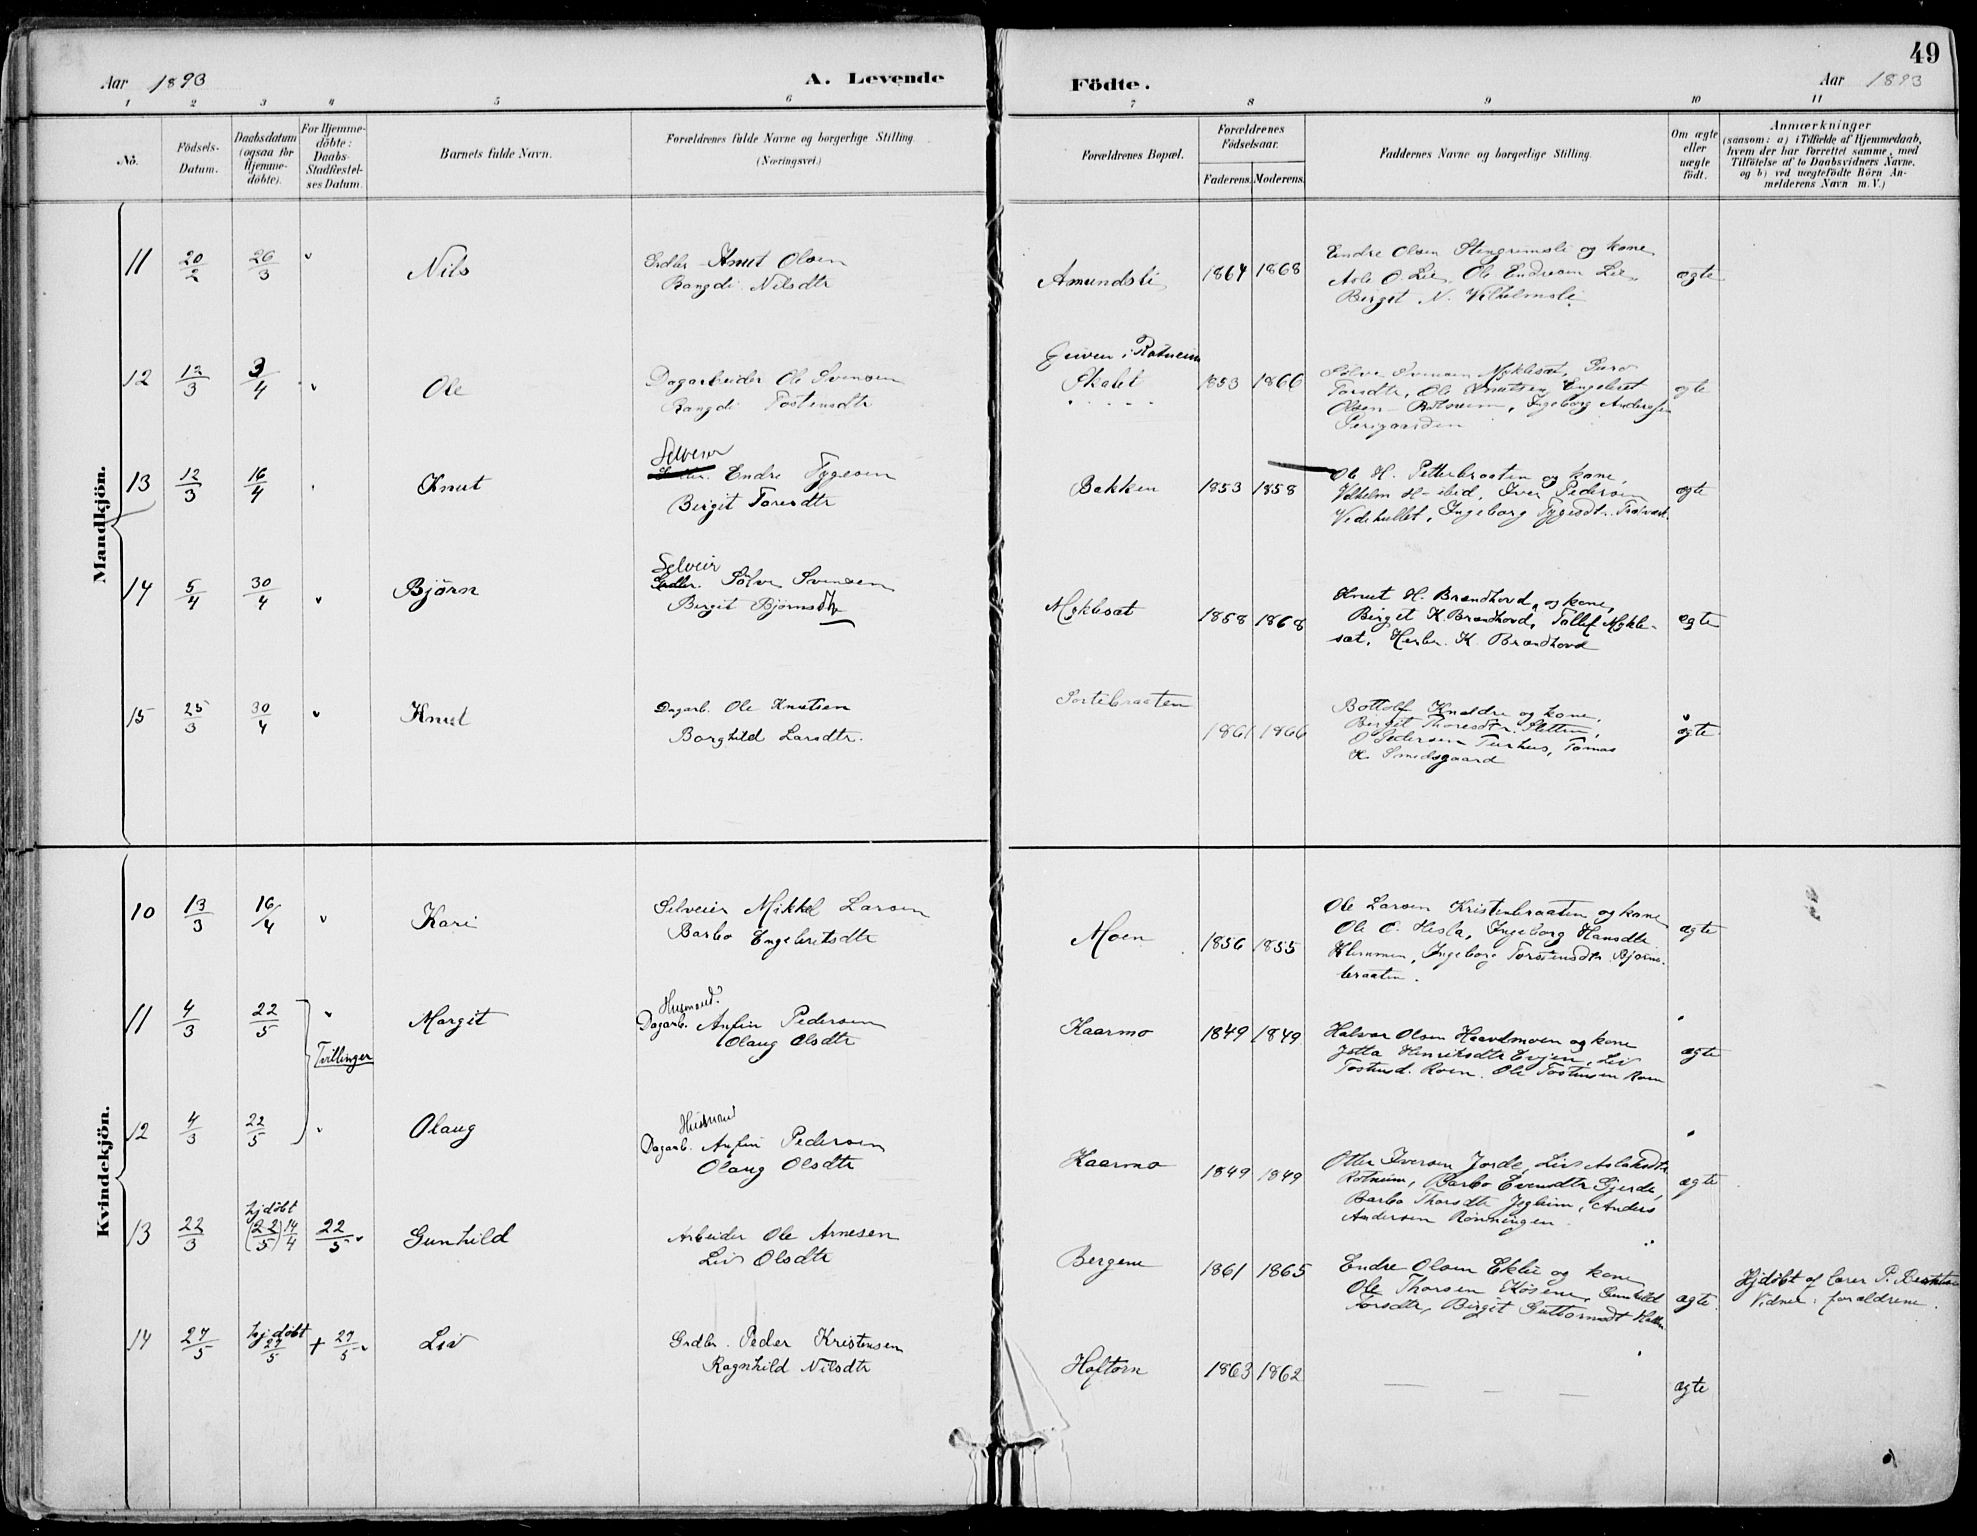 49
Aar 1893 A. Levende Födte. Aar 1893
1 2 3 4 5 6 7 8 9 10 11
No.
Födsels-
Datum.
Daabsdatum
(ogsaa for
Hjemme-
döbte).
For Hjemme-
döbte:
Daabs-
Stadfæstel-
ses Datum.
Barnets fulde Navn.
Forældrenes fulde Navne og borgerlige Stilling
(Næringsvei.)
Forældrenes Bopæl.
Forældrenes
Födselsaar.
Faderens. Moderens.
Faddernes Navne og borgerlige Stilling.
Om ægte
eller
uægte
födt.
Anmærkninger
(saasom: a) i Tilfælde af Hjemmedaab,
hvem der har forrettet samme, med
Tilföielse af to Daabsvidners Navne,
og b) ved uægtefödte Börn An-
melderens Navn m. V.)
Mandkjön.
11 20/2 26/3 " Nils
Grdbr. Knut Olsen
Rangdi Nilsdtr
Amundsli 1864 1868
Endre Olsen Stengrimsli og kone,
Asle O. Lie, Ole Endresen Lie,
Birget N. Vilhelmsli
ægte
12 12/3 3/4 " Ole
Dagarbeider Ole Svensen
Rangdi Tostensdtr
i Rotneim
Skalet 1853 1866
Sølve Svensen Myklesæt, Guro
Torsdtr, Ole Knutsen, Engebret
Olsen Rotneim, Ingeborg Andersen
ægte
13 12/3 16/4 " Knut
Selveier
Endre Tygesen
Birgit Toresdtr
Bakken 1853 1858
Ole H. Petterbraaten og kone,
Vilhelm H. ibid, Iver Pedersen
Vedehullet, Ingeborg Tygesdt.
ægte
14 5/4 30/4 " Bjørn
Selveier
Grdbr. Sølve Svensen
Birgit Bjørnsdtr
Myklesæt 1858 1868
Knut H. Brændhovd og kone,
Birget K. Brændhovd, Tollef Mykle-
sæt, Herbr. K. Brændhovd
ægte
15 25/3 30/4 " Knut
Dagarb. Ole Knutsen
Borghild Larsdtr.
Sortebraaten 1861 1866
Bottolf Knaldre og kone,
Birgit Thoresdtr. Sletten,
O Pedersen Turhus, Tomas
K. Smedsgaard
ægte
Kvindekjön.
10 13/3 16/4 " Kari
Selveier Mikkel Larsen
Barbo Engebretsdtr
Moen 1856 1855
Ole Larsen Kristenbraaten og kone
Ole O. Hesla, Ingeborg Hansdtr
Klemmen, Ingeborg Torstensdtr Bjørne-
braaten.
ægte
11 4/3 22/5 " Margit
Husmand.
Dagarb. Anfin Pedersen
Olaug Olsdtr
Kaarmo 1849 1849
Halvor Olsen Haavdmoen og kone
Jøtta Henriksdtr Evjen, Liv
Tostensd. Roen. Ole Tostensen Roen
ægte
Tvillinger
12 4/3 22/5 " Olaug
Husmand
Dagarb. Anfin Pedersen
Olaug Olsdtr
Kaarmo 1849 1849
Otter Iversen Jorde, Liv Aslaksdtr
Rotneim, Barbo Evensdtr Gjerde,
Barbo Thorsdtr Jegleim, Anders
Andersen Rønningen
ægte
13 22/3 hjdøbt (22/5) 14/4 22/5 " Gunhild
Arbeider Ole Arnesen
Liv Olsdtr
Bergene 1861 1865
Endre Olsen Eklie og kone
Ole Thorsen Køsene, Gunhild
Torsdtr, Birgit Guttormsdt
ægte.
Hjdøbt af lærer P.
Vidner: forældrene.
14 27/5 hjdøbt 27/5 + 27/5 " Liv
Grdbr. Peder Kristensen
Ragnhild Nilsdtr
Haftorn 1863 1862
— — —
ægte